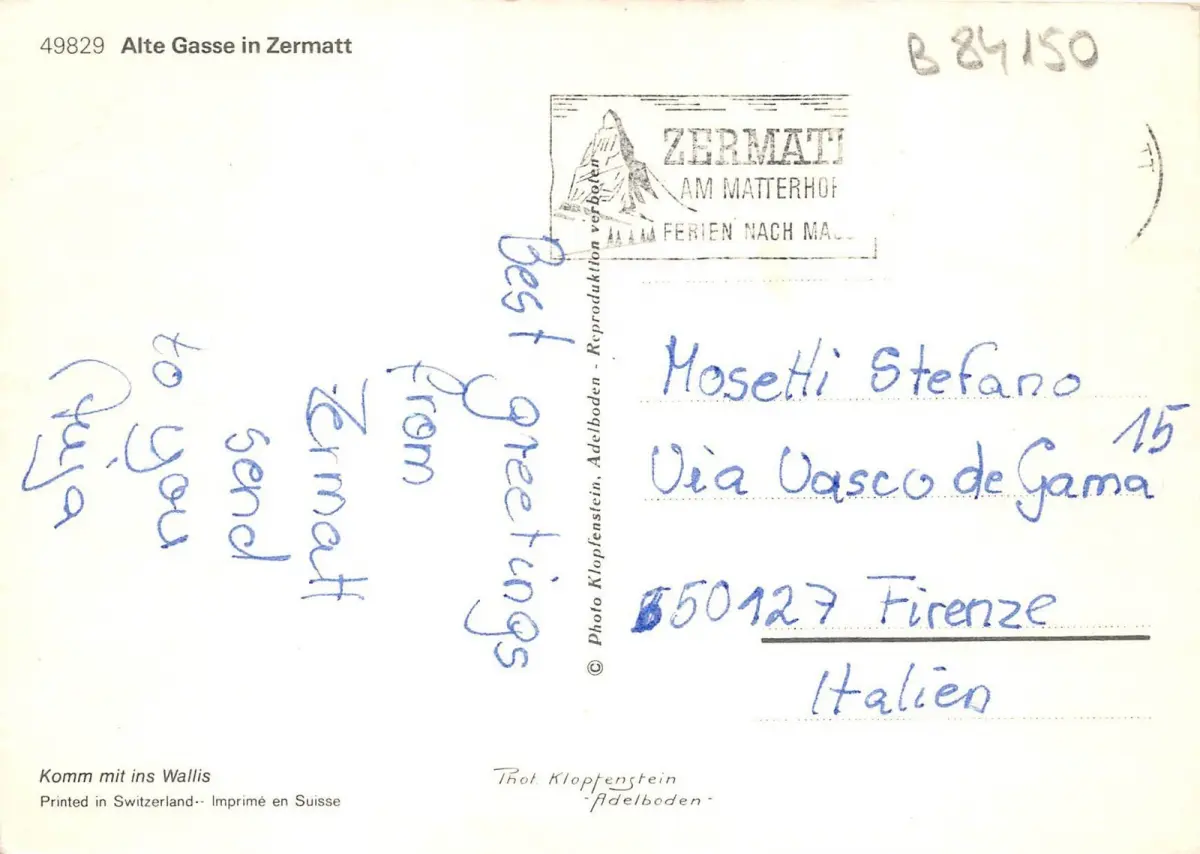 49829 Alte Gasse in Zermatt
B 84150
ZERMATT
AM MATTERHOR
FERIEN NACH MA
TT
Best greetings
from
Zermatt
send
to you
© Photo Klopfenstein, Adelboden - Reproduktion verboten
Mosetti Stefano
Via Vasco de Gama 15
50127 Firenze
Italien
Komm mit ins Wallis
Printed in Switzerland -- Imprimé en Suisse
Phot. Klopfenstein
- Adelboden -